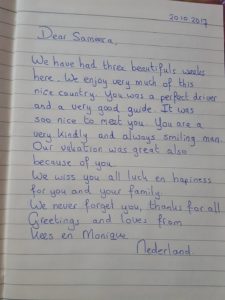 20.10.2017
Dear Sameera,
We have had three beautifuls weeks
here. We enjoy very much of this
nice country. You was a perfect driver
and a very good guide. It was
soo nice to meet you. You are a
very kindly and always smiling man.
Our vakation was great also
because of you
We wiss you all luck en hapiness
for you and your family.
We never forget you, thanks for all
Greetings and loves from
Kees en Monique
Nederland